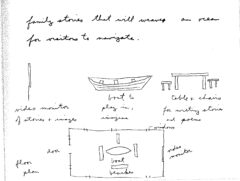 family stories that will weave an ocean
for visitors to navigate.
video monitor
of stories & images
boat to
play in,
imagine
table & chairs
for writing stories
and poems
door
video
monitor
boat
floor
plan